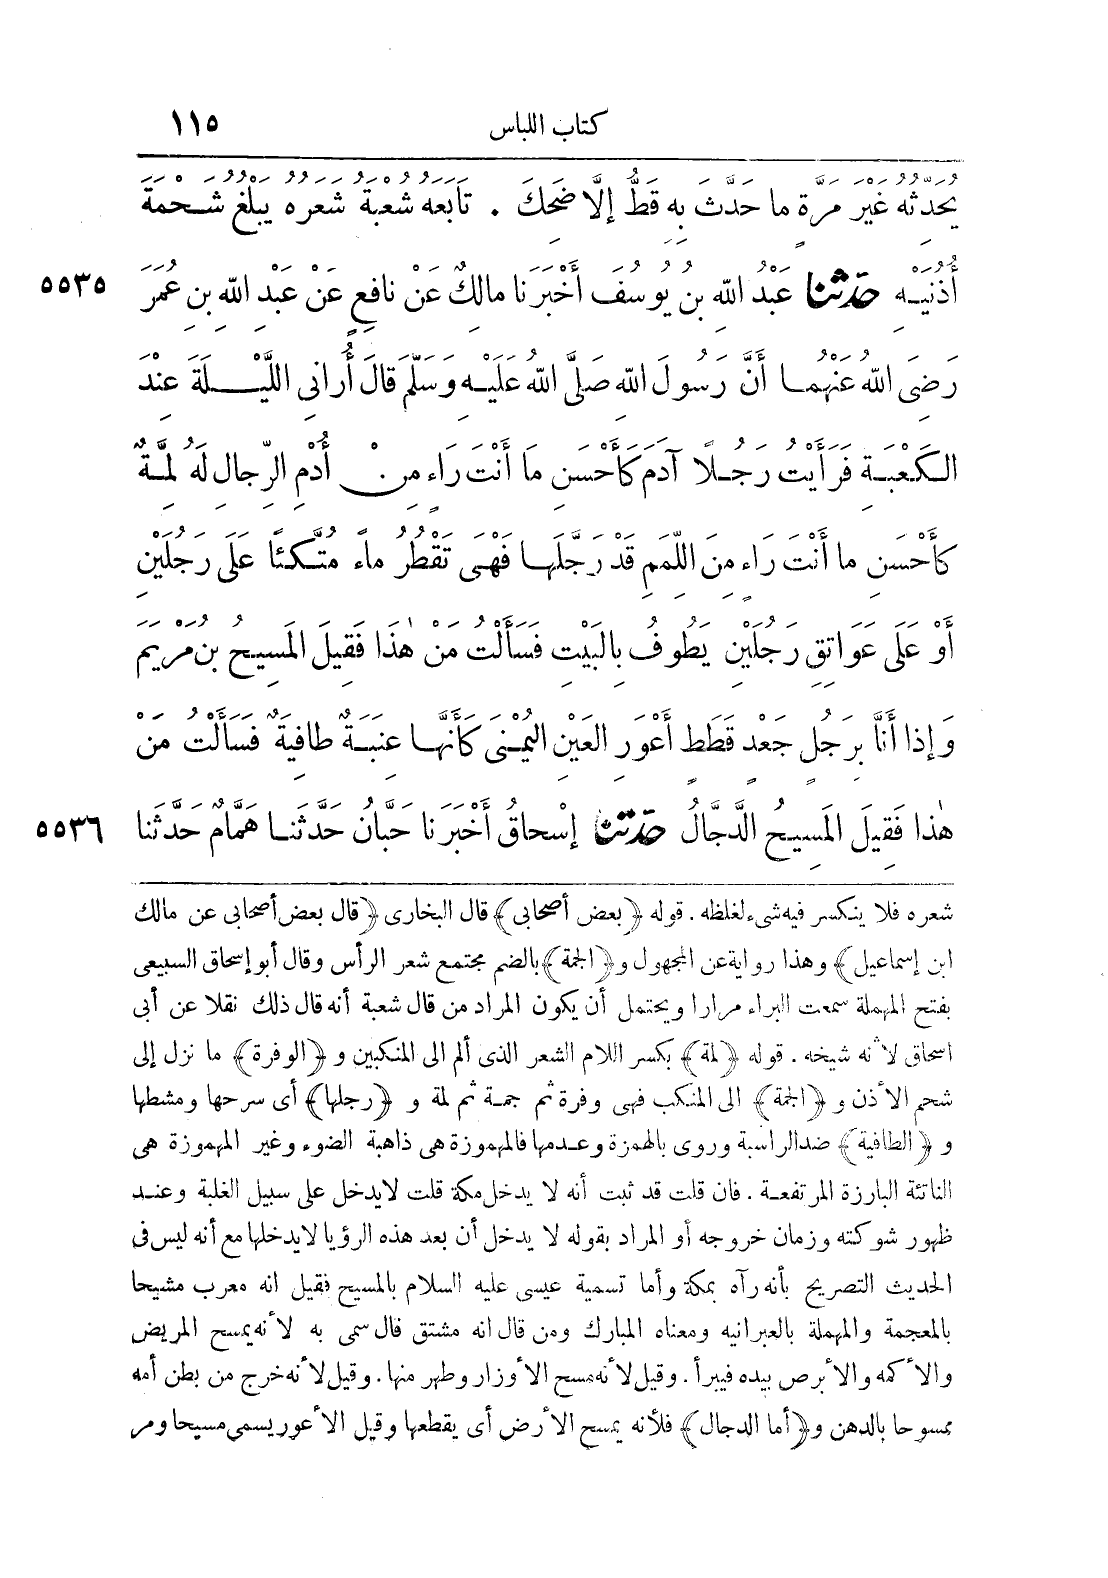 كتاب اللباس ١١٥
يُحَدِّثُهُ غَيْرَ مَرَّةٍ ما حَدَّثَ بِهِ قَطُّ إِلَّا ضَحِكَ . تَابَعَهُ شُعْبَةُ شَعَرُهُ يَبْلُغُ شَحْمَةَ
أُذُنَيْهِ حَدَّثَنَا عَبْدُ اللهِ بنُ يُوسُفَ أَخْبَرَنا مالِكٌ عَنْ نافِعٍ عَنْ عَبْدِ اللهِ بنِ عُمَرَ ٥٥٣٥
رَضِىَ اللهُ عَنْهُما أَنَّ رَسُولَ اللهِ صَلَّى اللهُ عَلَيْهِ وَسَلَّمَ قالَ أُرانِى اللَّيْلَةَ عِنْدَ
الكَعْبَةِ فَرَأَيْتُ رَجُلًا آدَمَ كَأَحْسَنِ مَا أَنْتَ رَاءٍ مِنْ أُدْمِ الرِّجالِ لَهُ لِمَّةٌ
كَأَحْسَنِ ما أَنْتَ رَاءٍ مِنَ اللِّمَمِ قَدْ رَجَّلَها فَهْىَ تَقْطُرُ ماءً مُتَّكِئًا عَلَى رَجُلَيْنِ
أَوْ عَلَى عَوَاتِقِ رَجُلَيْنِ يَطُوفُ بِالبَيْتِ فَسَأَلْتُ مَنْ هٰذا فَقِيلَ المَسِيحُ بنُ مَرْيَمَ
وَإِذا أَنَا بِرَجُلٍ جَعْدٍ قَطَطٍ أَعْوَرِ العَيْنِ اليُمْنَى كَأَنَّها عِنَبَةٌ طافِيَةٌ فَسَأَلْتُ مَنْ
هٰذا فَقِيلَ المَسِيحُ الدَّجَّالُ حَدَّثَنَا إِسْحاقُ أَخْبَرَنا حَبَّانُ حَدَّثَنا هَمَّامٌ حَدَّثَنا ٥٥٣٦
شعره فلا ينكسر فيه شىء لغلظه . قوله ﴿بعض أصحابى﴾ قال البخارى ﴿قال بعض أصحابى عن مالك
ابن إسماعيل﴾ وهذا رواية عن المجهول و﴿الجمة﴾ بالضم مجتمع شعر الرأس وقال أبو إسحاق السبيعى
بفتح المهملة سمعت البراء مرارا ويحتمل أن يكون المراد من قال شعبة أنه قال ذلك نقلا عن أبى
اسحاق لأنه شيخه . قوله ﴿لمة﴾ بكسر اللام الشعر الذى ألم الى المنكبين و ﴿الوفرة﴾ ما نزل إلى
شحم الأذن و ﴿الجمة﴾ الى المنكب فهى وفرة ثم جمة ثم لمة و ﴿رجلها﴾ أى سرحها ومشطها
و ﴿الطافية﴾ ضد الراسبة وروى بالهمزة وعدمها فالمهموزة هى ذاهبة الضوء وغير المهموزة هى
الناتئة البارزة المرتفعة . فان قلت قد ثبت أنه لا يدخل مكة قلت لا يدخل على سبيل الغلبة وعند
ظهور شوكته وزمان خروجه أو المراد بقوله لا يدخل أن بعد هذه الرؤيا لا يدخلها مع أنه ليس فى
الحديث التصريح بأنه رآه بمكة وأما تسمية عيسى عليه السلام بالمسيح فقيل انه معرب مشيحا
بالمعجمة والمهملة بالعبرانيه ومعناه المبارك ومن قال انه مشتق قال سمى به لأنه يمسح المريض
والأكمه والأبرص بيده فيبرأ . وقيل لأنه مسح الأوزار وطهر منها . وقيل لأنه خرج من بطن أمه
ممسوحا بالدهن و﴿أما الدجال﴾ فلأنه يمسح الأرض أى يقطعها وقيل الأعور يسمى مسيحا ومر